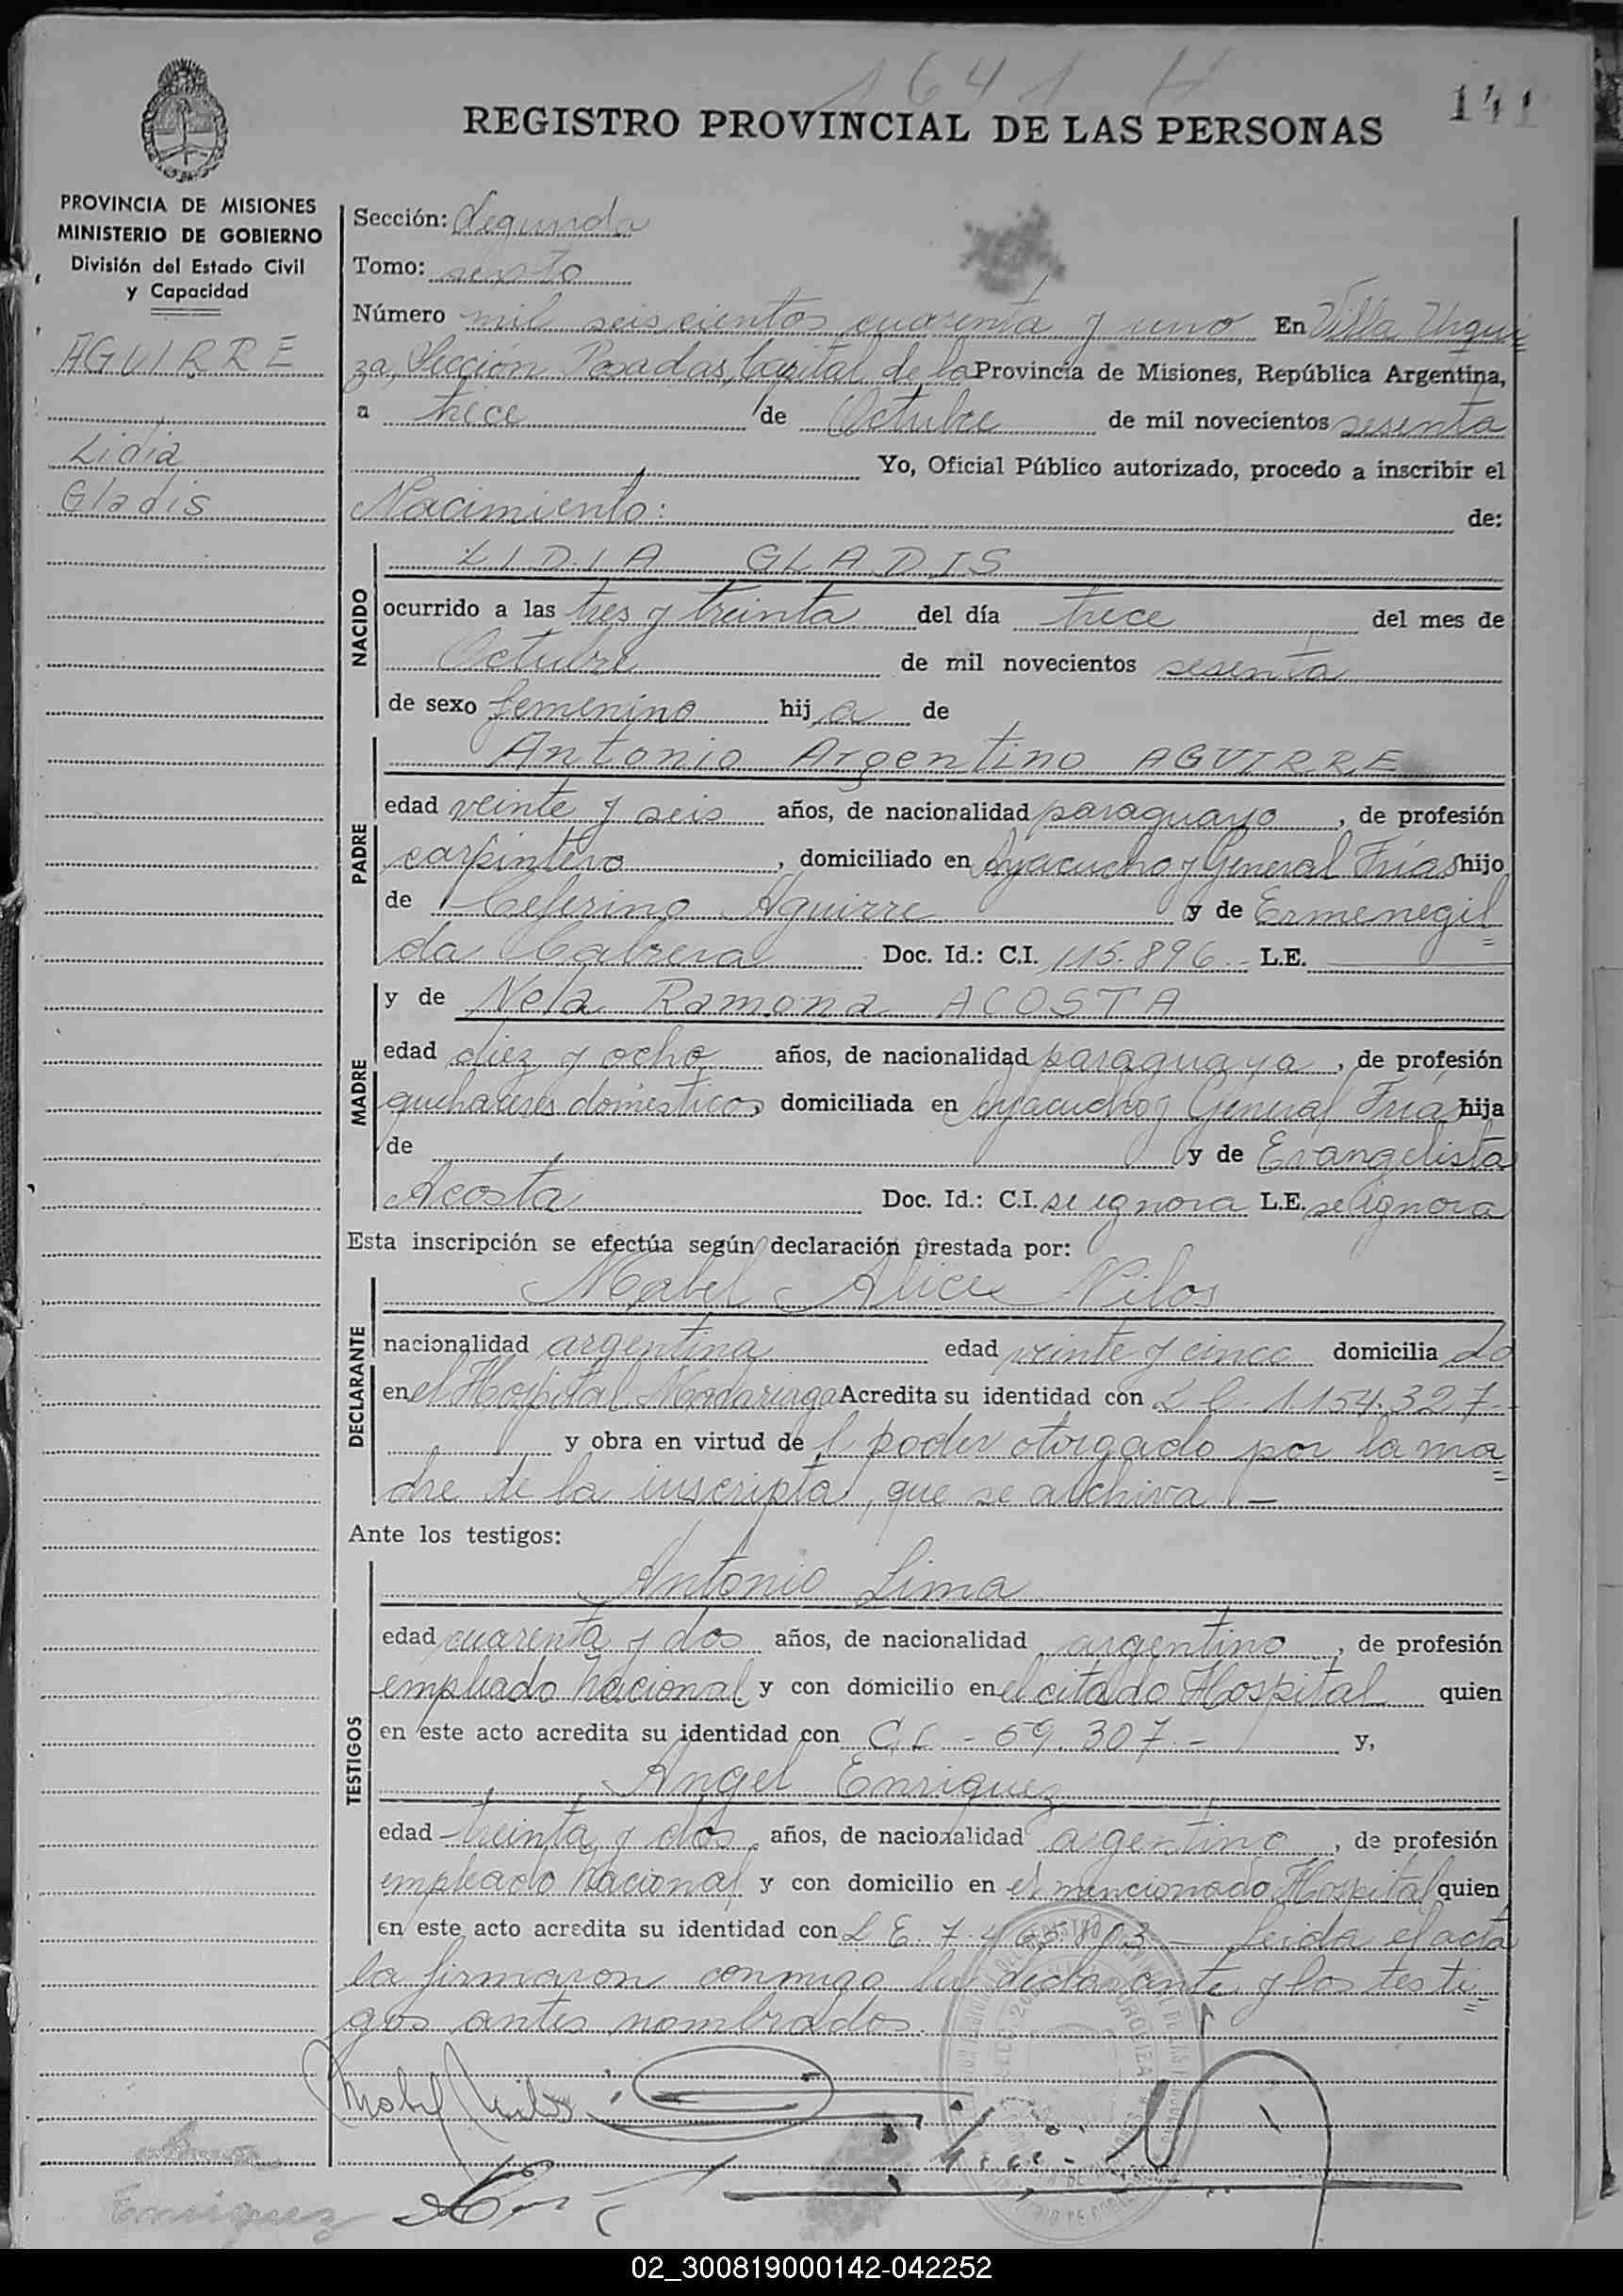 1641 H
141
REGISTRO PROVINCIAL DE LAS PERSONAS
PROVINCIA DE MISIONES
MINISTERIO DE GOBIERNO
División del Estado Civil
y Capacidad
AGUIRRE
Lidia
Gladis
Sección: Segunda
Tomo: sexto
Número mil seiscientos cuarenta y uno En Villa Urqui
za, Sección Posadas, Capital de la Provincia de Misiones, República Argentina,
a trece de Octubre de mil novecientos sesenta
Yo, Oficial Público autorizado, procedo a inscribir el
Nacimiento: de:
NACIDO
LIDIA GLADIS
ocurrido a las tres y treinta del día trece del mes de
Octubre de mil novecientos sesenta
de sexo femenino hij a de
PADRE
Antonio Argentino AGUIRRE
edad veinte y seis años, de nacionalidad paraguayo, de profesión
carpintero, domiciliado en Ayacucho y General Frías hijo
de Ceferino Aguirre y de Ermenegil
da Cabrera Doc. Id.: C.I. 115.896.- L.E.
MADRE
y de Nela Ramona ACOSTA
edad diez y ocho años, de nacionalidad paraguaya, de profesión
quehaceres domésticos domiciliada en Ayacucho y General Frías hija
de y de Evangelista
Acosta Doc. Id.: C.I. se ignora L.E. se ignora
Esta inscripción se efectúa según declaración prestada por:
DECLARANTE
Mabel Alice Nilos
nacionalidad argentina edad veinte y cinco domicilia da
en el Hospital Madariaga Acredita su identidad con L C. 1.154.327-
y obra en virtud de l poder otorgado por la ma
dre de la inscripta, que se archiva.-
Ante los testigos:
TESTIGOS
Antonio Lima
edad cuarenta y dos años, de nacionalidad argentino, de profesión
empleado nacional y con domicilio en el citado Hospital quien
en este acto acredita su identidad con C.I. - 59.307.- y,
Angel Enriquez
edad treinta y dos, años, de nacionalidad argentino, de profesión
empleado nacional y con domicilio en el mencionado Hospital quien
en este acto acredita su identidad con L E. 7.465.803 - Leida el acta
la firmaron conmigo la declarante y los testi
gos antes nombrados.
Mabel Nilos
Lima
Enriquez
02_300819000142-042252